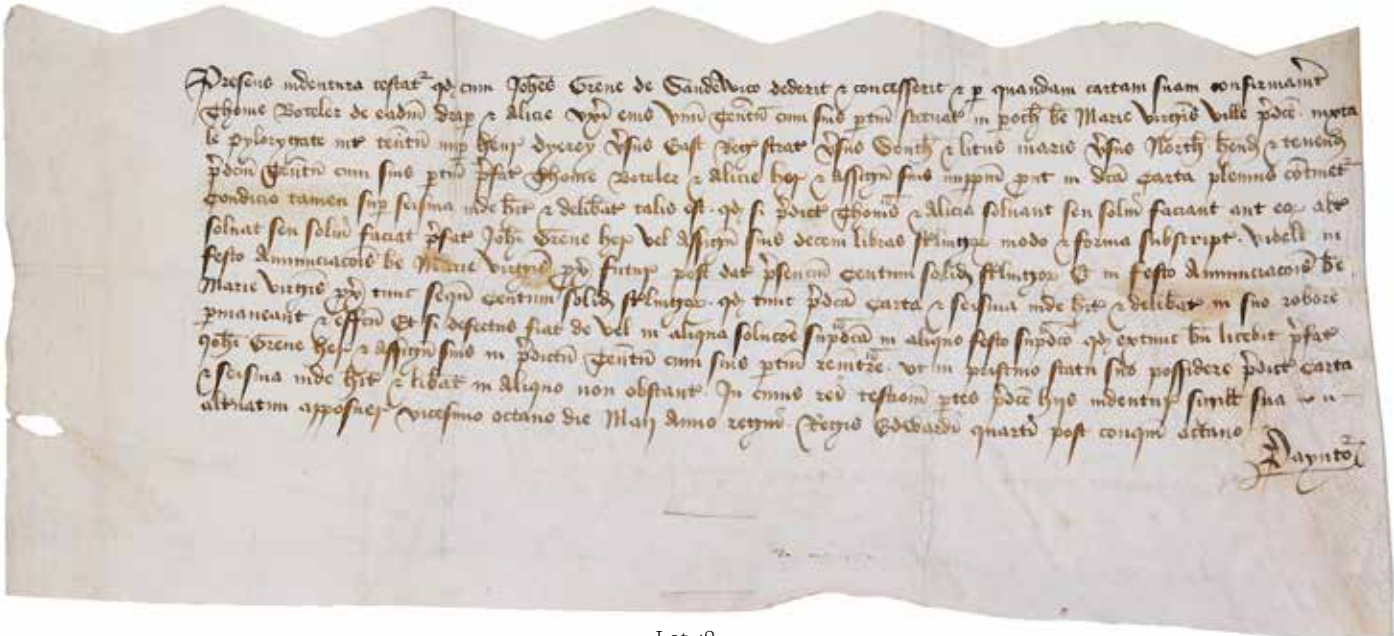 Presens indentura testat qd cum Johes Grene de Sandewico dederit & concesserit & p quandam cartam suam confirmavit
Thome Boteler de eadm drap & Alicie uxi eius unu tentu cum suis ptin situat in poch be Marie virginis ville pdce iuxta
le Pylorygate int tentu nup Henr Dyerey vsus Est Reg strat vsus South & litus maris vsus North hend & tenend
pdcm tentu cum suis ptin pfat Thome Boteler & Alicie her & assign suis imppm put in dca carta plenius continet
Condicio tamen sup seisina inde hit & delibat talis est qd si pdict Thomas & Alicia solvant seu solvi faciant aut eor alt
solvat seu solvi faciat pfat Johi Grene her vel assign suis decem libras sterlingor modo & forma subscript. videlt in
festo Annunciacois be Marie virginis px futur post dat psenciu centum solid sterlingor Et in festo Annunciacois be
Marie virginis px tunc sequn centum solid sterlingor. qd tunc pdca carta & seisina inde hit & delibat in suo robore
pmaneant & effcu Et si defectus fiat de vel in aliqua solucoe supdca in aliquo festo supdco qd extunc bn licebit pfat
Johi Grene her & assign suis in pdictu tentu cum suis ptin reintre. ut in pristino statu suo possidere pdict carta
& seisina inde hit & libat in aliquo non obstant. In cuius rei testiom ptes pdce hijs indentur sigill sua
altnatim apposuer vicesimo octavo die Maij Anno regni Regis Edwardi quarti post conqm octavo
Paynto
Lot 48